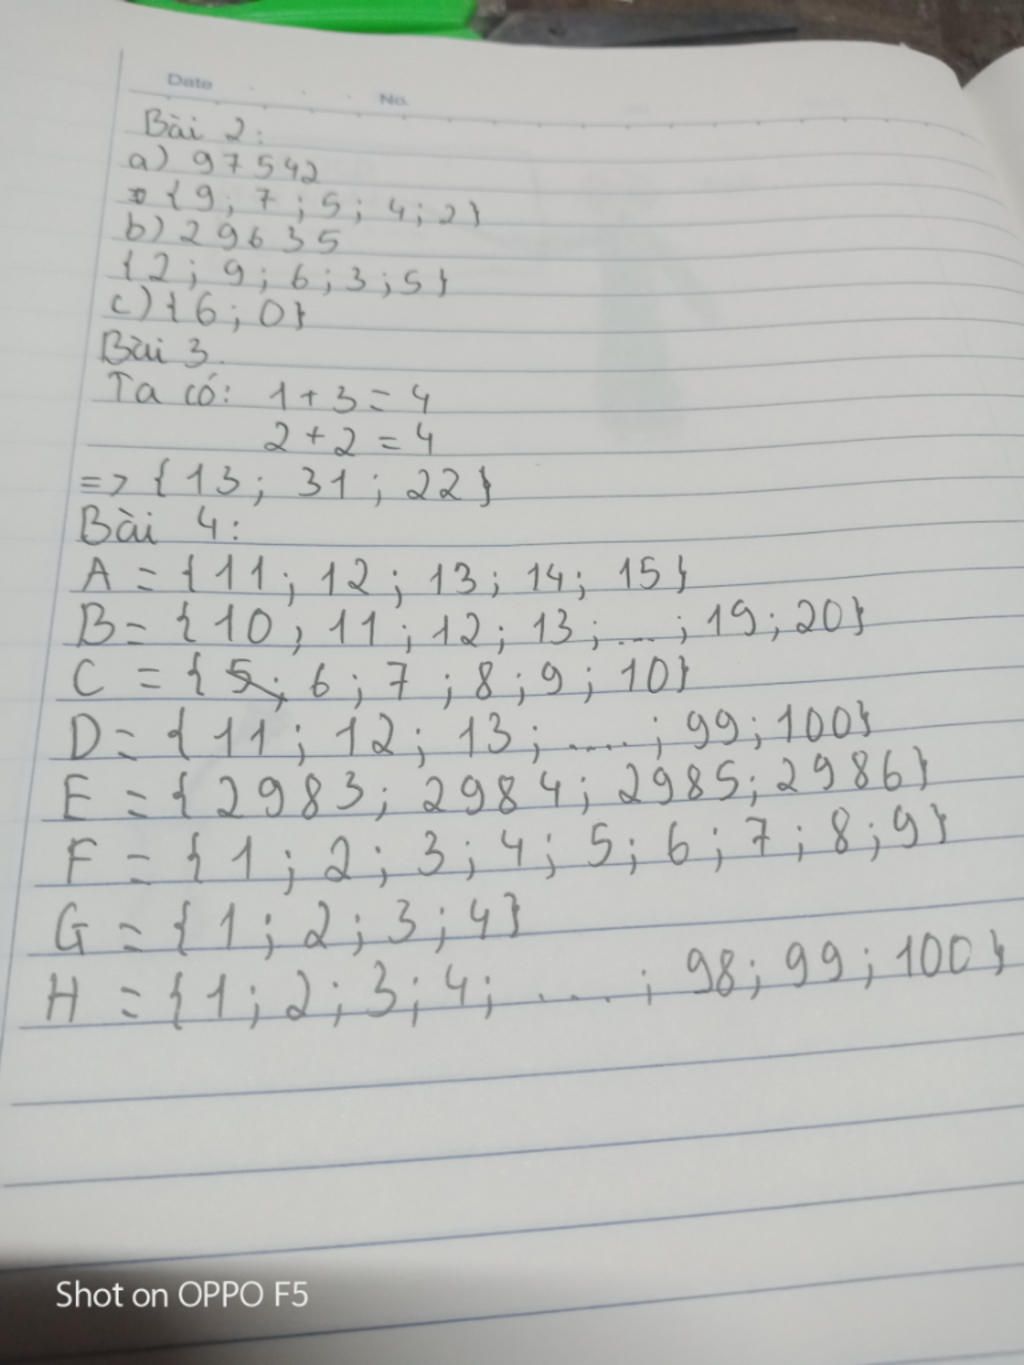 Date
No.
Bài 2:
a) 97542
{9; 7; 5; 4; 2}
b) 29635
{2; 9; 6; 3; 5}
c) {6; 0}
Bài 3.
Ta có: 1 + 3 = 4
2 + 2 = 4
=> {13; 31; 22}
Bài 4:
A = {11; 12; 13; 14; 15}
B = {10; 11; 12; 13; ...; 19; 20}
C = {5; 6; 7; 8; 9; 10}
D = {11; 12; 13; ....; 99; 100}
E = {2983; 2984; 2985; 2986}
F = {1; 2; 3; 4; 5; 6; 7; 8; 9}
G = {1; 2; 3; 4}
H = {1; 2; 3; 4; ....; 98; 99; 100}
Shot on OPPO F5